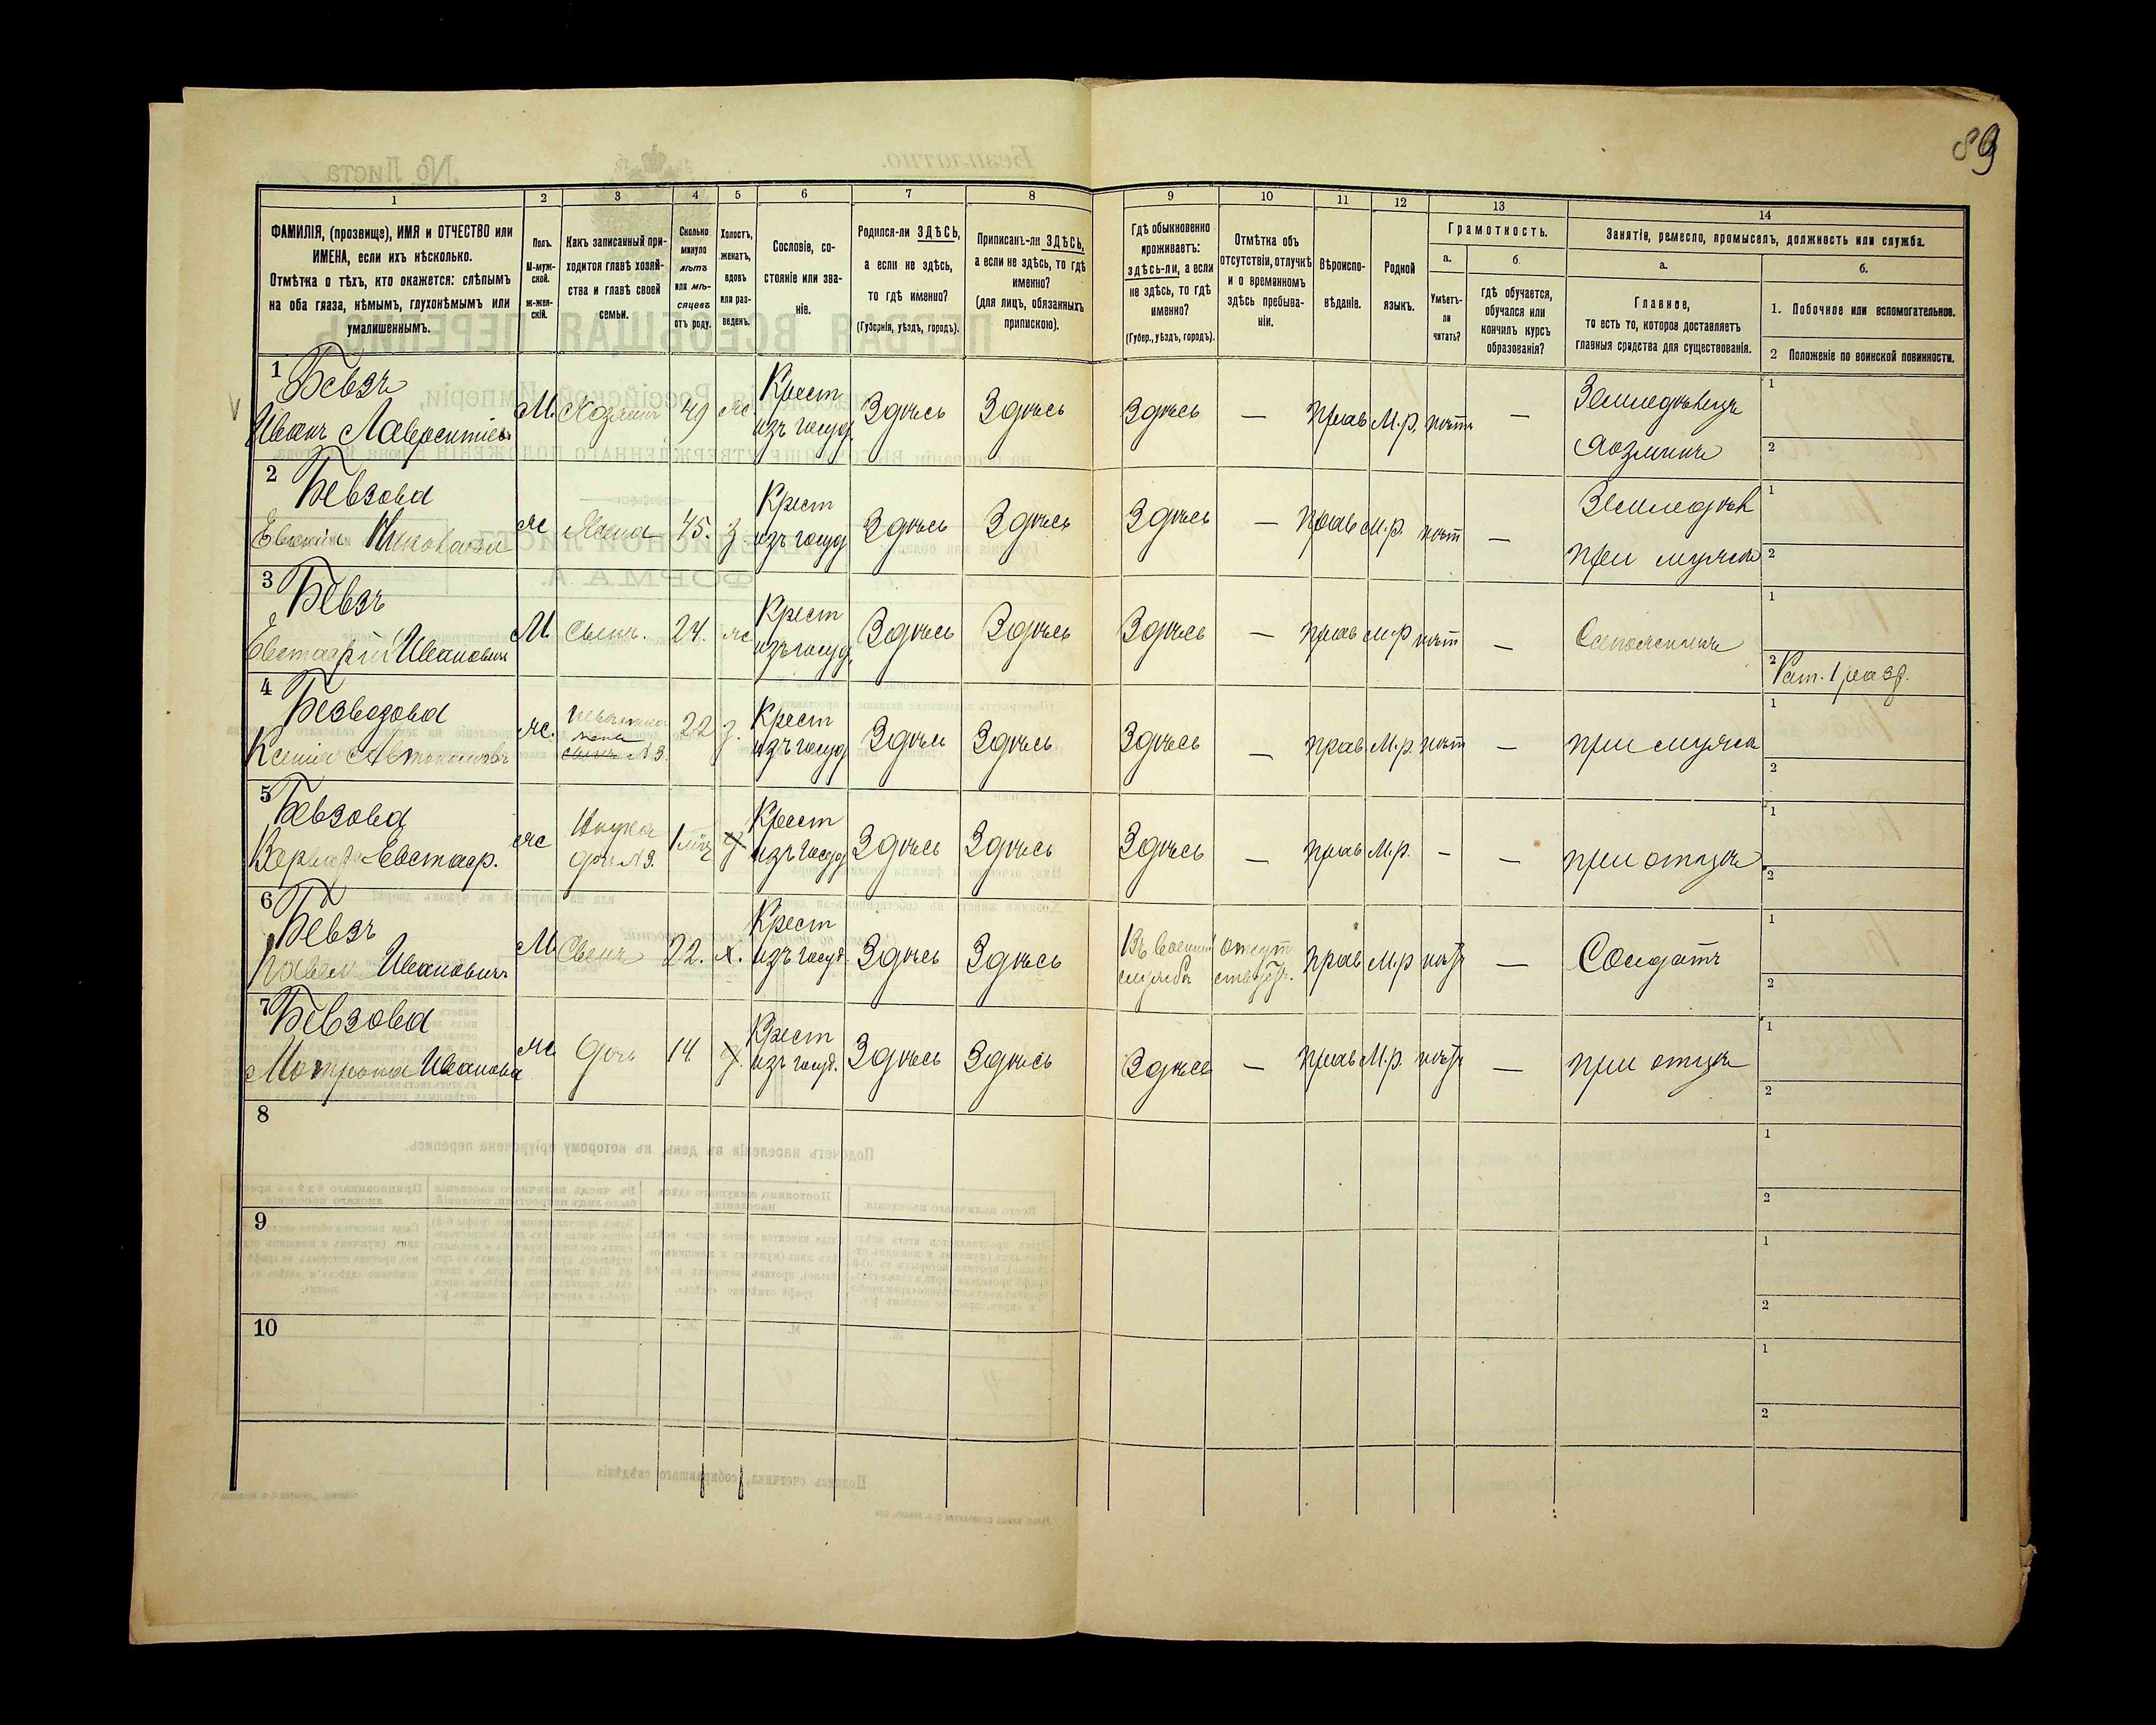 89
1
2
3
4
5
6
7
8
9
10
11
12
13
14
ФАМИЛІЯ, (прозвище), ИМЯ и ОТЧЕСТВО или
ИМЕНА, если ихъ нѣсколько.
Отмѣтка о тѣхъ, кто окажется: слѣпымъ
на оба глаза, нѣмымъ, глухонѣмымъ или
умалишеннымъ.
Полъ.
М-муж-
ской.
ж-жен-
скій.
Какъ записанный при-
ходится главѣ хозяй-
ства и главѣ своей
семьи.
Сколько
минуло
лѣтъ
или мѣ-
сяцевъ
отъ роду.
Холостъ,
женатъ,
вдовъ
или раз-
веденъ.
Сословіе, со-
стояніе или зва-
ніе.
Родился-ли ЗДѢСЬ,
а если не здѣсь,
то гдѣ именно?
(Губернія, уѣздъ, городъ).
Приписанъ-ли ЗДѢСЬ,
а если не здѣсь, то гдѣ
именно?
(для лицъ, обязанныхъ
припискою).
Гдѣ обыкновенно
проживаетъ:
здѣсь-ли, а если
не здѣсь, то гдѣ
именно?
(Губер., уѣздъ, городъ).
Отмѣтка объ
отсутствіи, отлучкѣ
и о временномъ
здѣсь пребыва-
ніи.
Вѣроиспо-
вѣданіе.
Родной
языкъ.
Грамотность.
а.
Умѣетъ-
ли
читать?
б.
гдѣ обучается,
обучался или
кончилъ курсъ
образованія?
Занятія, ремесло, промыселъ, должность или служба.
а.
Главное,
то есть то, которое доставляетъ
главныя средства для существованія.
б.
1. Побочное или вспомогательное.
2 Положеніе по воинской повинности.
1 Бевзъ
Иванъ Лаврентіев. М. Хозяинъ 49 ж. Крест изъ госуд. Здѣсь Здѣсь Здѣсь — прав М.р. нѣтъ — Земледѣлецъ хозяинъ 1 2
2 Бевзова
ж Жена 45. з. Крест изъ госуд Здѣсь Здѣсь Здѣсь — прав М.р. нѣт — Земледѣл при мужѣ 1 2
3 Бевзъ
Евстафій Ивановичъ М Сынъ. 24. ж Крест изъ госуд. Здѣсь Здѣсь Здѣсь — прав М.р нѣт — Сапожникъ 1 2 Рат. 1 разр.
4
Ксенія ж. невѣстка жена N 3. 22 з. Крест изъ госуд Здѣсь Здѣсь Здѣсь — прав М.р. нѣт — при мужѣ 1 2
5 Бевзова
Евстаф. ж Внука доч N 3. 1 мѣс Крест изъ госуд Здѣсь Здѣсь Здѣсь — прав М.р. - — при отцѣ 1 2
6 Бевзъ
Павелъ Ивановичъ М Сынъ 22. х. Крест изъ госуд. Здѣсь Здѣсь Въ военной службѣ отсутствуетъ. прав М.р нѣтъ — Солдатъ 1 2
7 Бевзова
Мотрона Иванова ж Дочь 14 Крест изъ госуд. Здѣсь Здѣсь Здѣсь — прав М.р. нѣтъ — при отцѣ 1 2
8 1 2
9 1 2
10 1 2